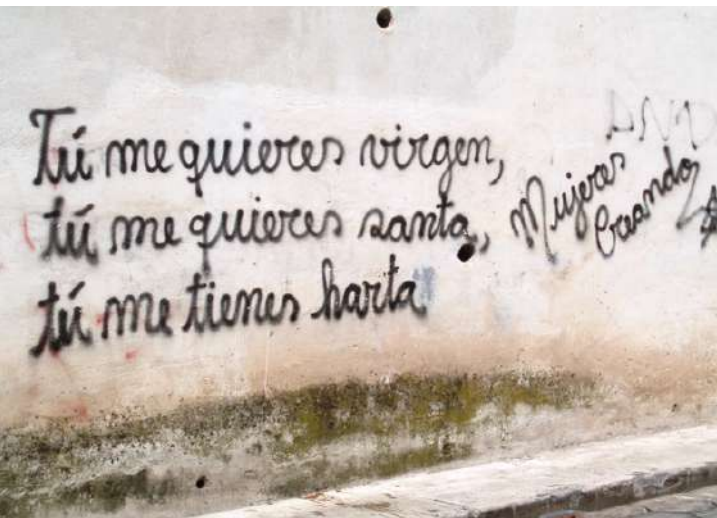 Tú me quieres virgen,
tú me quieres santa,
tú me tienes harta
Mujeres
Creando